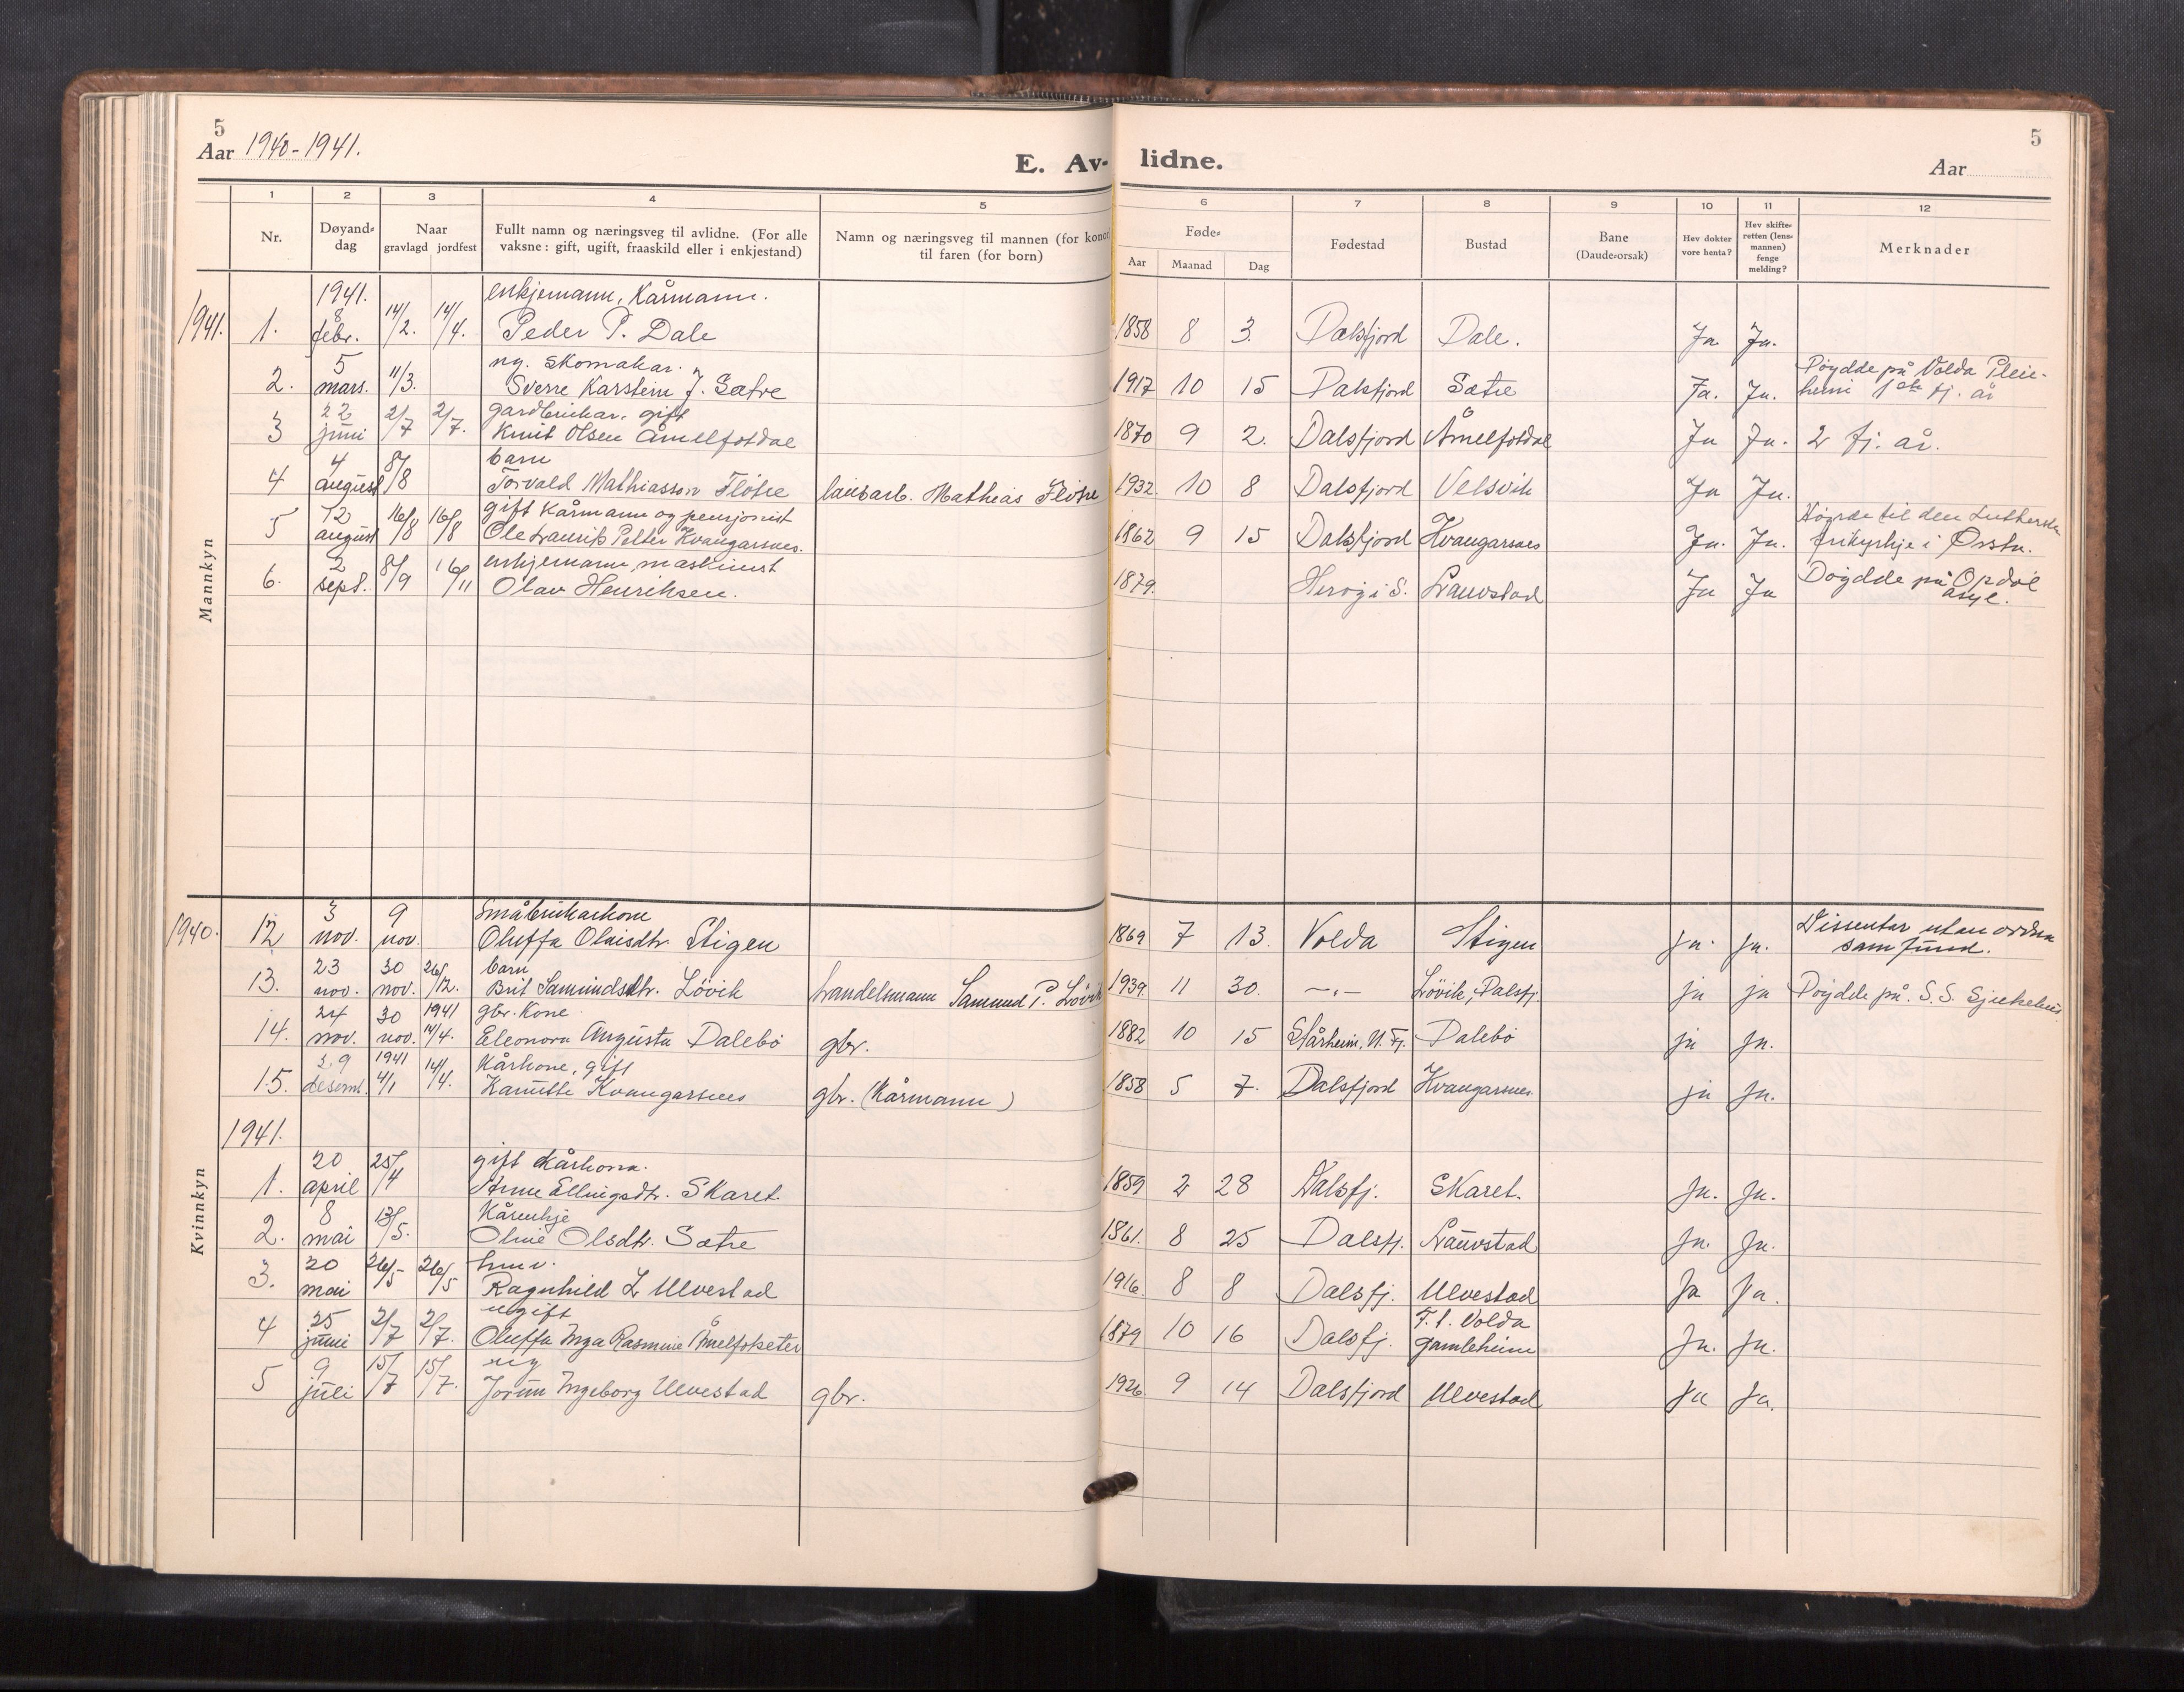 5
Aar 1940-1941.
E. Av-
lidne.
5
Aar
1 2 3 4 5 6 7 8 9 10 11 12
Nr.
Døyand-
dag
Naar
gravlagd jordfest
Fullt namn og næringsveg til avlidne. (For alle
vaksne: gift, ugift, fraaskild eller i enkjestand)
Namn og næringsveg til mannen (for konor)
til faren (for born)
Føde-
Aar Maanad Dag
Fødestad
Bustad
Bane
(Daude-orsak)
Hev dokter
vore henta?
Hev skifte-
retten (lens-
mannen)
fenge
melding?
Merknader
Mannkyn
1941. enkjemann, Kårmann.
1941. 1. 8 febr. 14/2. 14/4. Peder P. Dale 1858 8 3. Dalsfjord Dale. Ja Ja.
5 ng. skomakar. Døydde på Volda Pleie-
2. mars. 11/3. Sverre Karstein J. Sætre 1917 10 15 Dalsfjord Sætre Ja. Ja. heim 1 fj. år
22 gardbrukar, gift
3 juni 2/7 2/7. Knut Olsen Åmelfotdal 1870 9 2. Dalsfjord Åmelfotdal Ja Ja. 2 fj. år.
4 barn
4 august 8/8 Torvald Mathiasson Fløtre lausarb. Mathias Fløtre 1932. 10 8 Dalsfjord Velsvik Ja Ja.
12 gift Kårmann og pensjonist Høyrde til den Lutherske
5 august 16/8 16/8 Ole Laurits Petter Kvangarsnes. 1862 9 15 Dalsfjord Kvangarsnes Ja. Ja. frikyrkje i Ørsta.
2 enkjemann, maskinist
6. sept. 8/9 16/11 Olav Henriksen. 1879. Herøy i S. Lauvstad Ja Ja Døydde på Opdøl
asyl.
Kvinnkyn
3 9 Småbrukarkone Dissentar utan ordna
1940. 12 nov. nov. Oluffa Olaisdtr. Stigen 1869 7 13. Volda Stigen ja. ja. samfund.
23 30 26/12. barn
13. nov. nov. Brit Samundsdtr. Løvik handelsmann Samund P. Løvik 1939. 11 30. -"- Løvik, Dalsfj. ja ja Døydde på S.S. Sjukehus
24 30 1941 gbr. Kone
14. nov. nov. 14/4. Eleonora Augusta Dalebø gbr. 1882 10 15 Stårheim, N. Fj. Dalebø ja ja.
29 1941 Kårkone, gift
15. desemb. 4/1 14/4. Kamilla Kvangarsnes gbr. (Kårmann) 1858 5 7. Dalsfjord Kvangarsnes ja ja.
1941.
20 gift Kårkona.
1. april 25/4 Anne Ellingsdtr. Skaret. 1859 2 28 Dalsfj. Skaret. Ja. Ja.
8 Kårenkje
2. mai 13/5. Oline Olsdtr. Sætre 1861. 8 25 Dalsfj. Lauvstad Ja. Ja.
20 husv.
3. mai 26/5 26/5 Ragnhild L Ulvestad 1916. 8 8 Dalsfj. Ulvestad Ja Ja.
25 ugift F. t. Volda
4 juni 2/7 2/7. Oluffa Inga Rasmine Åmelfotseter 1879 10 16 Dalsfj. gamleheim Ja. Ja.
9 ug
5 juli 15/7 15/7. Jorun Ingeborg Ulvestad gbr. 1926. 9 14 Dalsfjord Ulvestad Ja Ja.